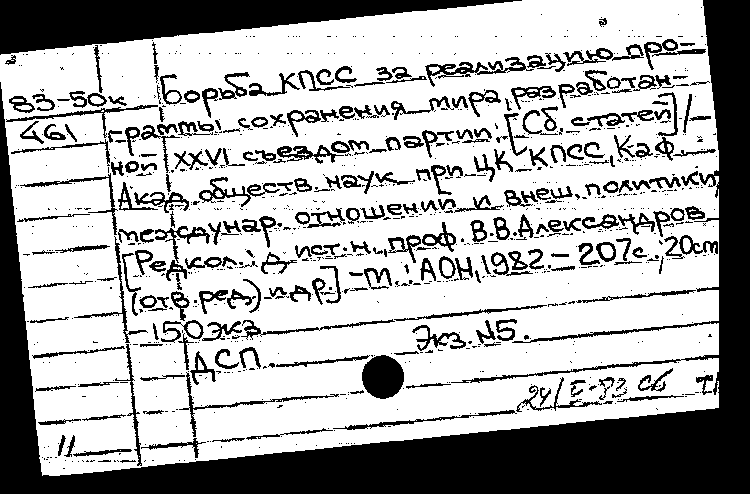 83-50к Борьба КПСС за реализацию про-
461 граммы сохранения мира, разработан-
ной XXVI съездом партии: [Сб. статей] /
Акад. обществ. наук при ЦК КПСС, Каф.
междунар. отношений и внеш. политики;
[Редкол.: д. ист. н., проф. В.В. Александров
(отв. ред.) и др.] - М.: АОН, 1982. - 207 с.; 20 см
- 150 экз.
ДСП. Экз. N5.
24/II-83 Сб
11